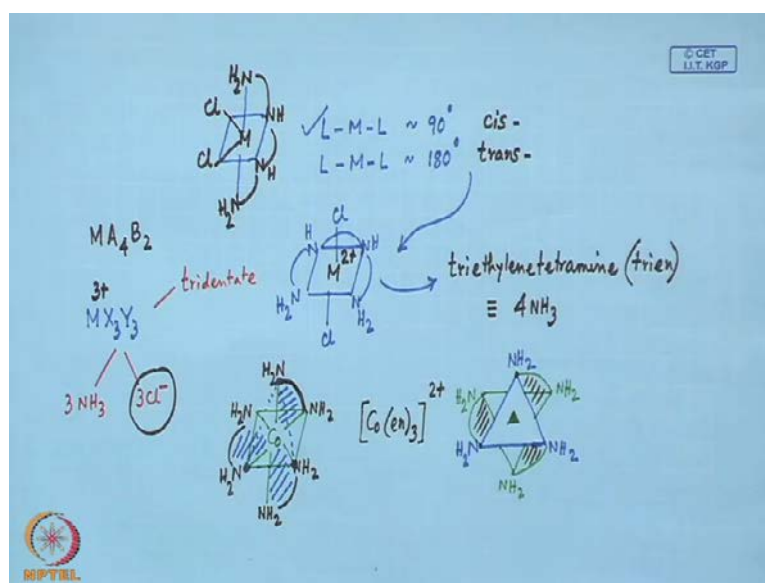 © CET
I.I.T. KGP
H₂N
Cl
NH
M
Cl
N
H
H₂N
✓L-M-L ~ 90° cis-
L-M-L ~ 180° trans-
MA₄B₂
3+
MX₃Y₃
tridentate
3 NH₃
3Cl⁻
Cl
H
N
NH
M²⁺
N
H₂
N
H₂
Cl
triethylenetetramine (trien)
≡ 4NH₃
NH₂
H₂N
NH₂
Co
H₂N
NH₂
NH₂
[Co(en)₃]²⁺
NH₂
H₂N
NH₂
H₂N
NH₂
NH₂
NPTEL